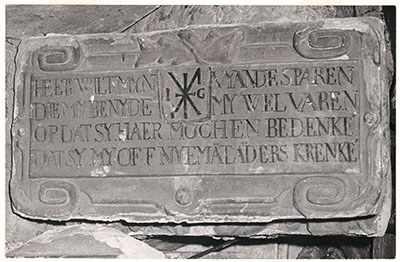 HEER WILT MYN VYANDE SPAREN
DIE MY BENYDE I G MY WEL VAREN
OP DAT SY HAER MOCHEN BEDENKE
DAT SY MY OFF NYEMAT ADERS KRENKE